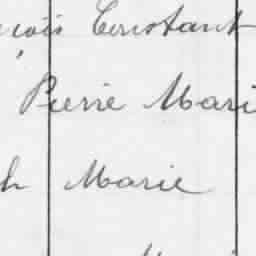 çois Constant
Pierre Mari
h Marie